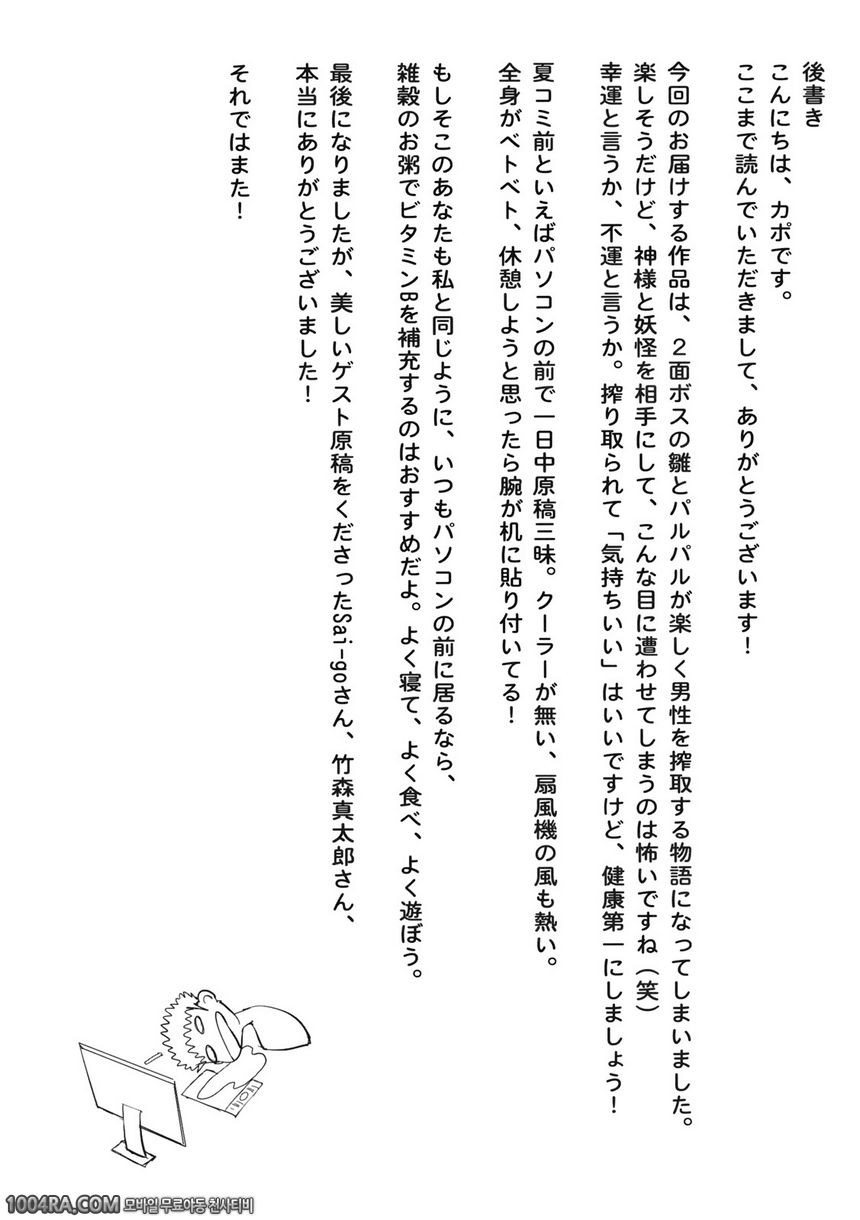 後書き
こんにちは、カポです。
ここまで読んでいただきまして、ありがとうございます！
今回のお届けする作品は、２面ボスの雛とパルパルが楽しく男性を搾取する物語になってしまいました。
楽しそうだけど、神様と妖怪を相手にして、こんな目に遭わせてしまうのは怖いですね（笑）
幸運と言うか、不運と言うか。搾り取られて「気持ちいい」はいいですけど、健康第一にしましょう！
夏コミ前といえばパソコンの前で一日中原稿三昧。クーラーが無い、扇風機の風も熱い。
全身がベトベト、休憩しようと思ったら腕が机に貼り付いてる！
もしそこのあなたも私と同じように、いつもパソコンの前に居るなら、
雑穀のお粥でビタミンBを補充するのはおすすめだよ。よく寝て、よく食べ、よく遊ぼう。
最後になりましたが、美しいゲスト原稿をくださったSai-goさん、竹森真太郎さん、
本当にありがとうございました！
それではまた！
1004RA.COM 모바일 무료야동 천사티비